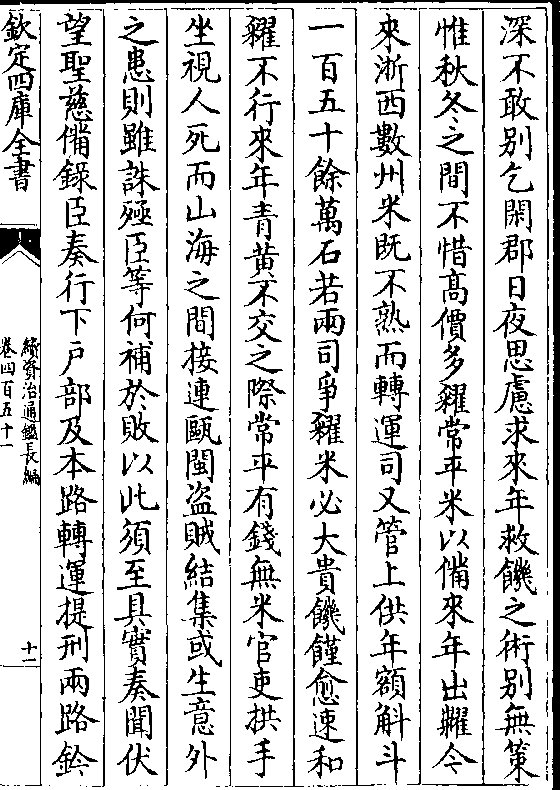 深不敢别乞閑郡日夜思慮求來年救饑之術别無策
惟秋冬之間不惜髙價多糴常平米以備來年出糶今
來浙西數州米既不熟而轉運司又管上供年額斛斗
一百五十餘萬石若兩司爭糴米必大貴饑饉愈速和
糴不行來年青黄不交之際常平有錢無米官吏拱手
坐視人死而山海之間接連甌閩盗賊結集或生意外
之患則雖誅殛臣等何補於敗以此須至具實奏聞伏
望聖慈備錄臣奏行下户部及本路轉運提刑兩路鈐
欽定四庫全書
續資治通鑑長編
卷四百五十一
十一